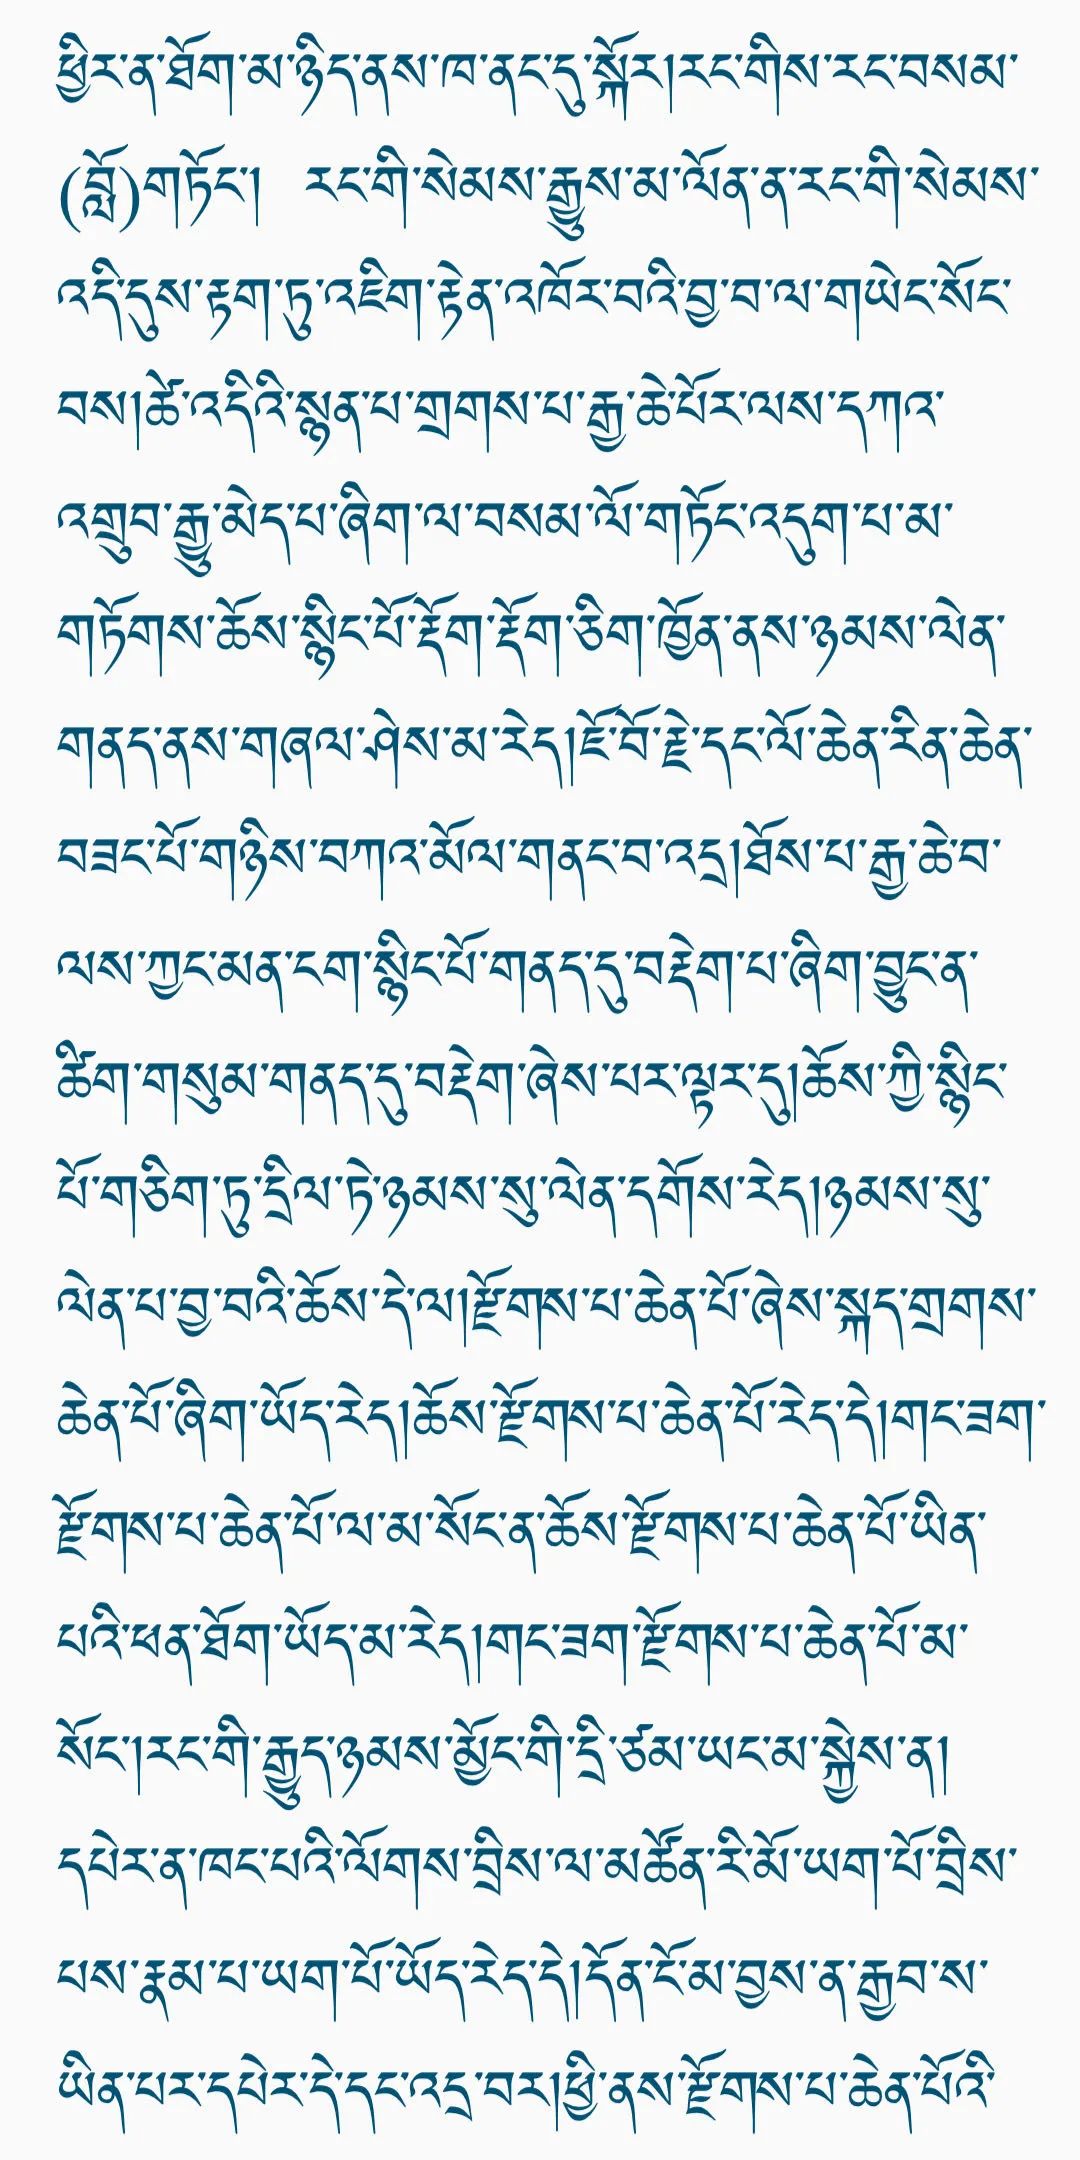 ཕྱིར་ན་ཐོག་མ་ཉིད་ནས་ཁ་ནང་དུ་སྐོར།རང་གིས་རང་བསམ་
(བློ)གཏོང་།  རང་གི་སེམས་རྒྱུས་མ་ལོན་ན་རང་གི་སེམས་
འདི་དུས་རྟག་ཏུ་འཇིག་རྟེན་འཁོར་བའི་བྱ་བ་ལ་གཡེང་སོང་
བས།ཚེ་འདིའི་སྙན་པ་གྲགས་པ་རྒྱ་ཆེ་པོར་ལས་དཀའ་
འགྲུབ་རྒྱུ་མེད་པ་ཞིག་ལ་བསམ་ལོ་གཏོང་འདུག་པ་མ་
གཏོགས་ཆོས་སྙིང་པོ་རྡོག་རྡོག་ཅིག་ཁྱོན་ནས་ཉམས་ལེན་
གནད་ནས་གཞལ་ཤེས་མ་རེད།ཇོ་བོ་རྗེ་དང་ལོ་ཆེན་རིན་ཆེན་
བཟང་པོ་གཉིས་བཀའ་མོལ་གནང་བ་འདྲ།ཐོས་པ་རྒྱ་ཆེ་བ་
ལས་ཀྱང་མན་ངག་སྙིང་པོ་གནད་དུ་བརྡེག་པ་ཞིག་བྱུང་ན་
ཚིག་གསུམ་གནད་དུ་བརྡེག་ཞེས་པར་ལྟར་དུ།ཆོས་ཀྱི་སྙིང་
པོ་གཅིག་ཏུ་དྲིལ་ཏེ་ཉམས་སུ་ལེན་དགོས་རེད།ཉམས་སུ་
ལེན་པ་བྱ་བའི་ཆོས་དེ་ལ།རྫོགས་པ་ཆེན་པོ་ཞེས་སྐད་གྲགས་
ཆེན་པོ་ཞིག་ཡོད་རེད།ཆོས་རྫོགས་པ་ཆེན་པོ་རེད་དེ།གང་ཟག་
རྫོགས་པ་ཆེན་པོ་ལ་མ་སོང་ན་ཆོས་རྫོགས་པ་ཆེན་པོ་ཡིན་
པའི་ཕན་ཐོག་ཡོད་མ་རེད།གང་ཟག་རྫོགས་པ་ཆེན་པོ་མ་
སོང་།རང་གི་རྒྱུད་ཉམས་མྱོང་གི་དྲི་ཙམ་ཡང་མ་སྐྱེས་ན།
དཔེར་ན་ཁང་པའི་ལོགས་བྲིས་ལ་མཚོན་རི་མོ་ཡག་པོ་བྲིས་
པས་རྣམ་པ་ཡག་པོ་ཡོད་རེད་དེ།དོན་ངོ་མ་བྱས་ན་རྒྱབ་ས་
ཡིན་པར་དཔེར་དེ་དང་འདྲ་བར།ཕྱི་ནས་རྫོགས་པ་ཆེན་པོའི་